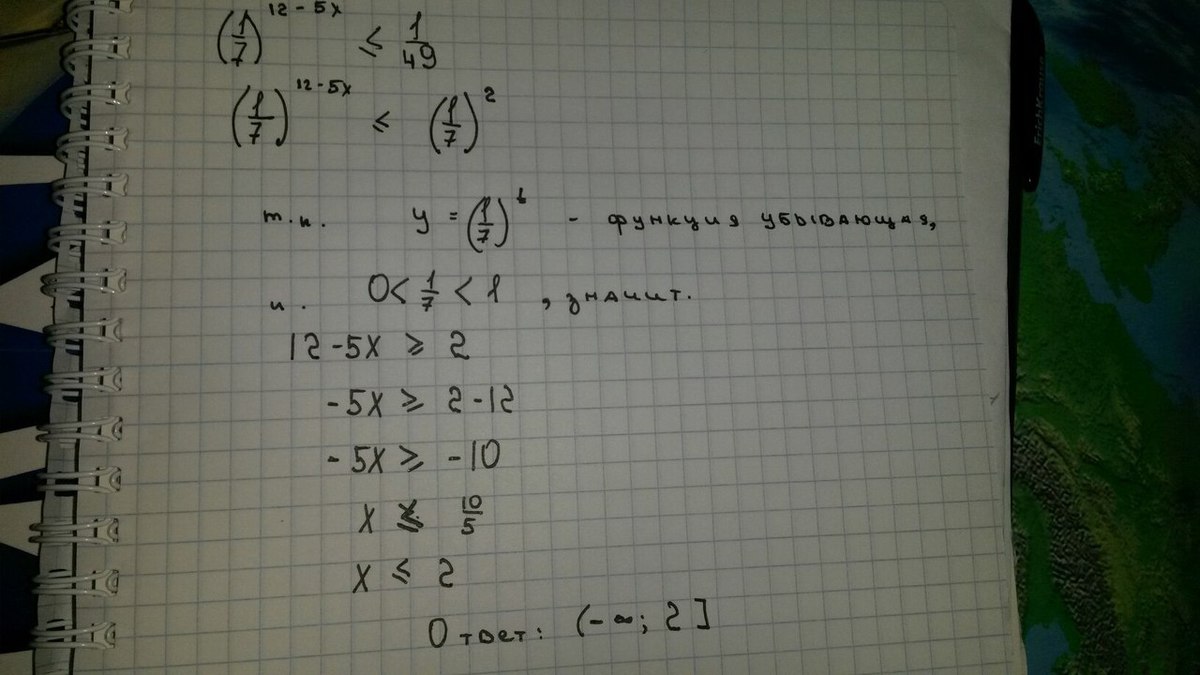 (1/7)^(12-5x) ≤ 1/49
(1/7)^(12-5x) ≤ (1/7)^2
т.к. y = (1/7)^t - функция убывающая,
и. 0 < 1/7 < 1 , значит.
12-5x ≥ 2
-5x ≥ 2-12
-5x ≥ -10
x ≤ 10/5
x ≤ 2
Ответ: (-∞; 2]